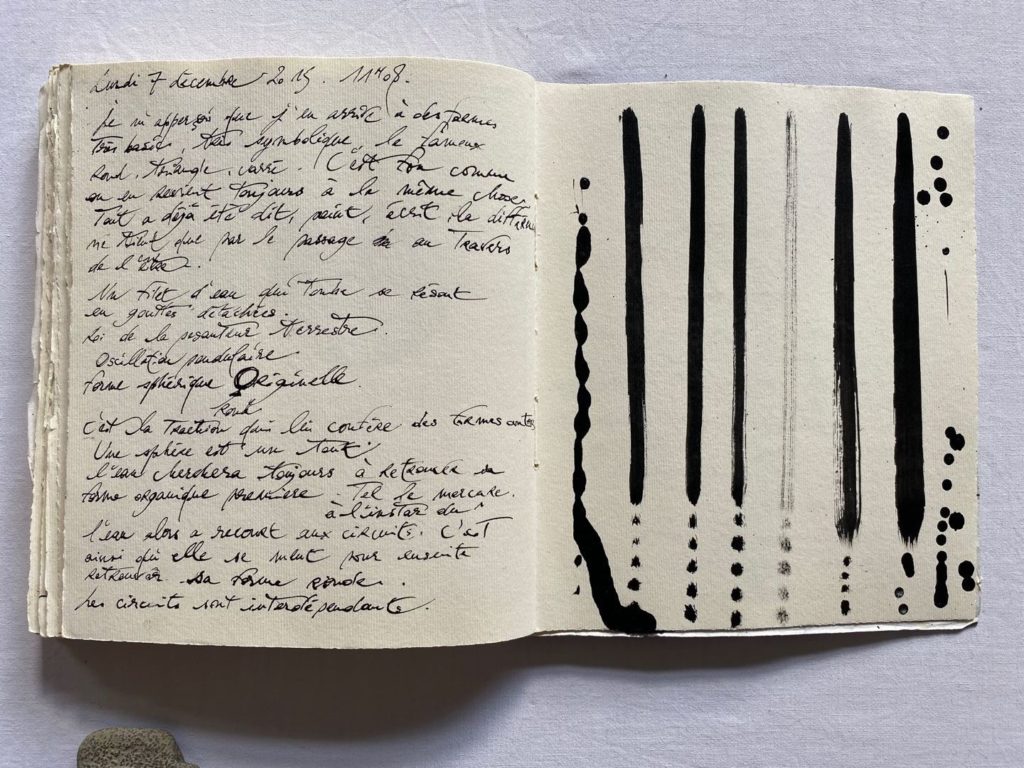 Lundi 7 décembre 2015. 11H08.
je m'apperçois que j'en arrive à des formes
très basées, très symbolique, le fameux
rond, triangle, carré. C'est fou comme
on en revient toujours a la même chose,
Tout a déjà été dit, peint, écrit, la différence
ne tient que par le passage au travers
de l'Etre.
Un filet d'eau qui tombe se résout
en gouttes détachées.
Loi de la pesanteur terrestre.
Oscillation pendulaire
forme sphérique Originelle.
ronde
C'est la traction qui lui confère des formes
Une sphère est un tout.
l'eau cherchera toujours à retrouver sa
forme organique première. Tel le mercure.
à l'instar du
l'eau alors a recourt aux circuits. C'est
ainsi qu'elle se meut pour ensuite
retrouver sa forme ronde.
Les circuits sont interdépendants.